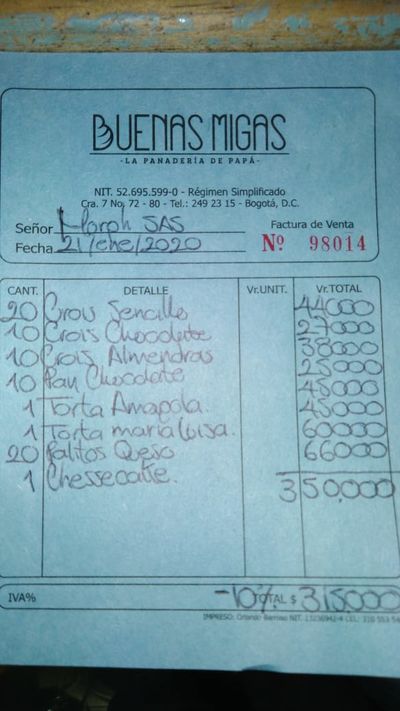 BUENAS MIGAS
-LA PANADERÍA DE PAPÁ-
NIT. 52.695.599-0 - Régimen Simplificado
Cra. 7 No. 72 - 80 - Tel.: 249 23 15 - Bogotá, D.C.
Señor SAS
Factura de Venta
Fecha 21/ene/2020
Nº 98014
CANT. DETALLE Vr.UNIT. Vr.TOTAL
20 Crois Sencillo 44000
10 Crois Chocolate 27000
10 Crois Almendras 38000
10 Pan Chocolate 25000
1 Torta Amapola. 45000
1 Torta maria luisa. 45000
20 Palitos Queso 60000
1 Chessecake. 66000
350,000
IVA% -10% TOTAL $ 315000
IMPRESO: Orlando Barroso NIT.